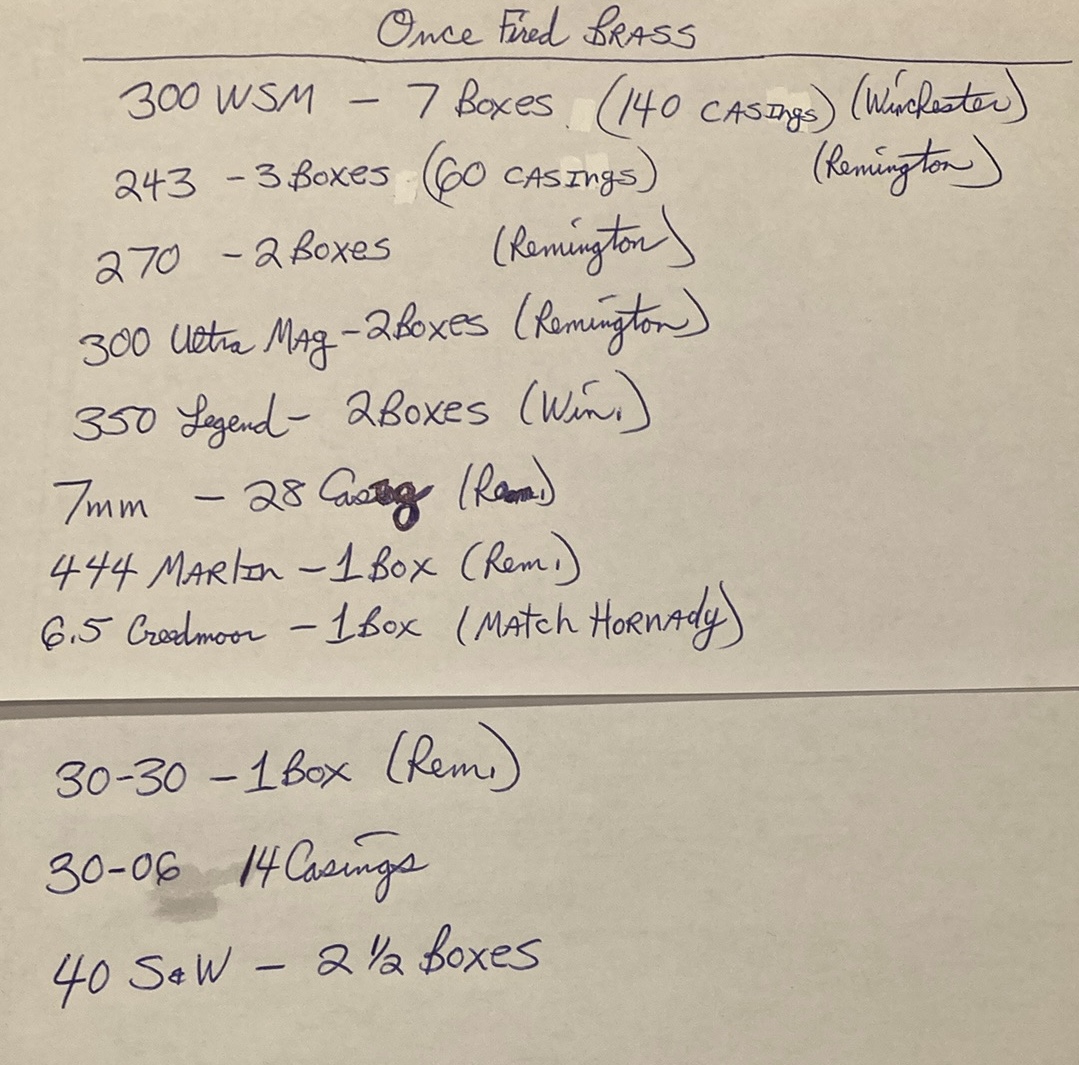 Once Fired BRASS
300 WSM - 7 Boxes (140 CASINgs) (Winchester)
243 - 3 Boxes (60 CASINgs) (Remington)
270 - 2 Boxes (Remington)
300 Ultra MAg - 2 Boxes (Remington)
350 Legend - 2 Boxes (Win.)
7mm - 28 Casing (Rem.)
444 MARlIn - 1 Box (Rem.)
6.5 Creedmoor - 1 Box (MAtch HORNAdy)
30-30 - 1 Box (Rem.)
30-06 14 Casings
40 S&W - 2 1/2 Boxes